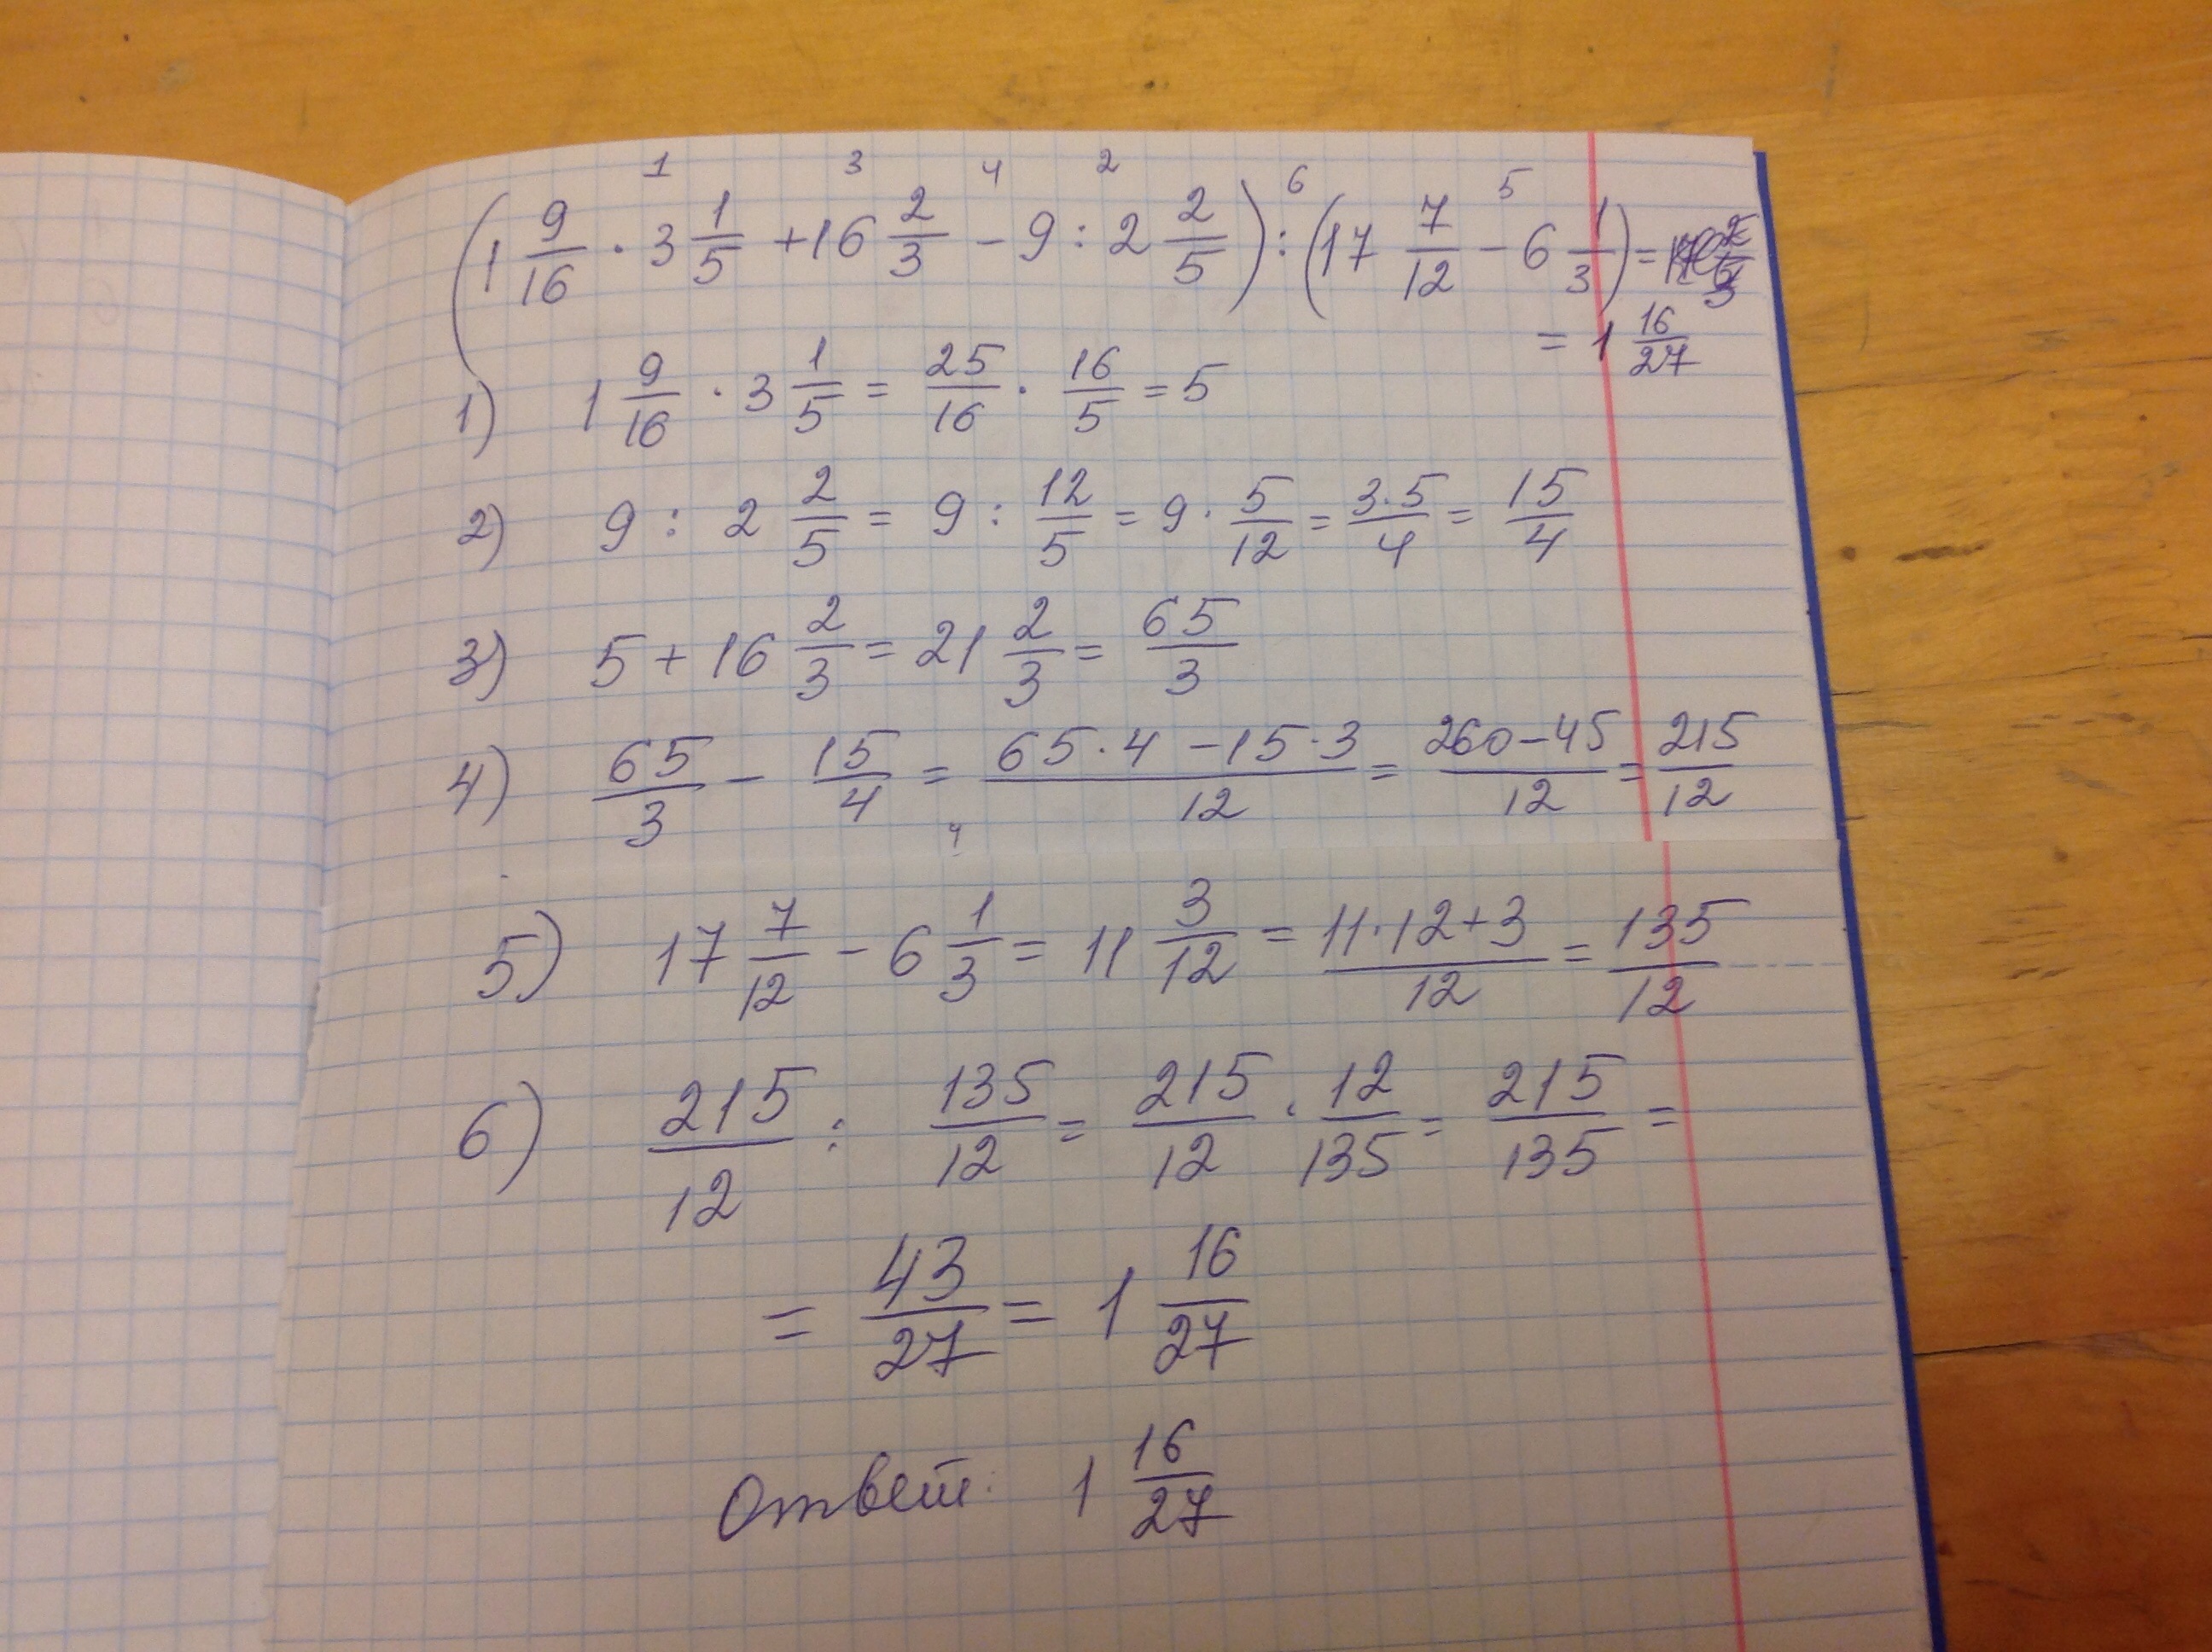 1 3 4 2 6 5
(1 9/16 · 3 1/5 + 16 2/3 - 9 : 2 2/5) : (17 7/12 - 6 1/3) =
= 1 16/27
1) 1 9/16 · 3 1/5 = 25/16 · 16/5 = 5
2) 9 : 2 2/5 = 9 : 12/5 = 9 · 5/12 = 3·5/4 = 15/4
3) 5 + 16 2/3 = 21 2/3 = 65/3
4) 65/3 - 15/4 = 65·4 - 15·3/12 = 260-45/12 = 215/12
4
5) 17 7/12 - 6 1/3 = 11 3/12 = 11·12+3/12 = 135/12
6) 215/12 : 135/12 = 215/12 · 12/135 = 215/135 =
= 43/27 = 1 16/27
Ответ: 1 16/27